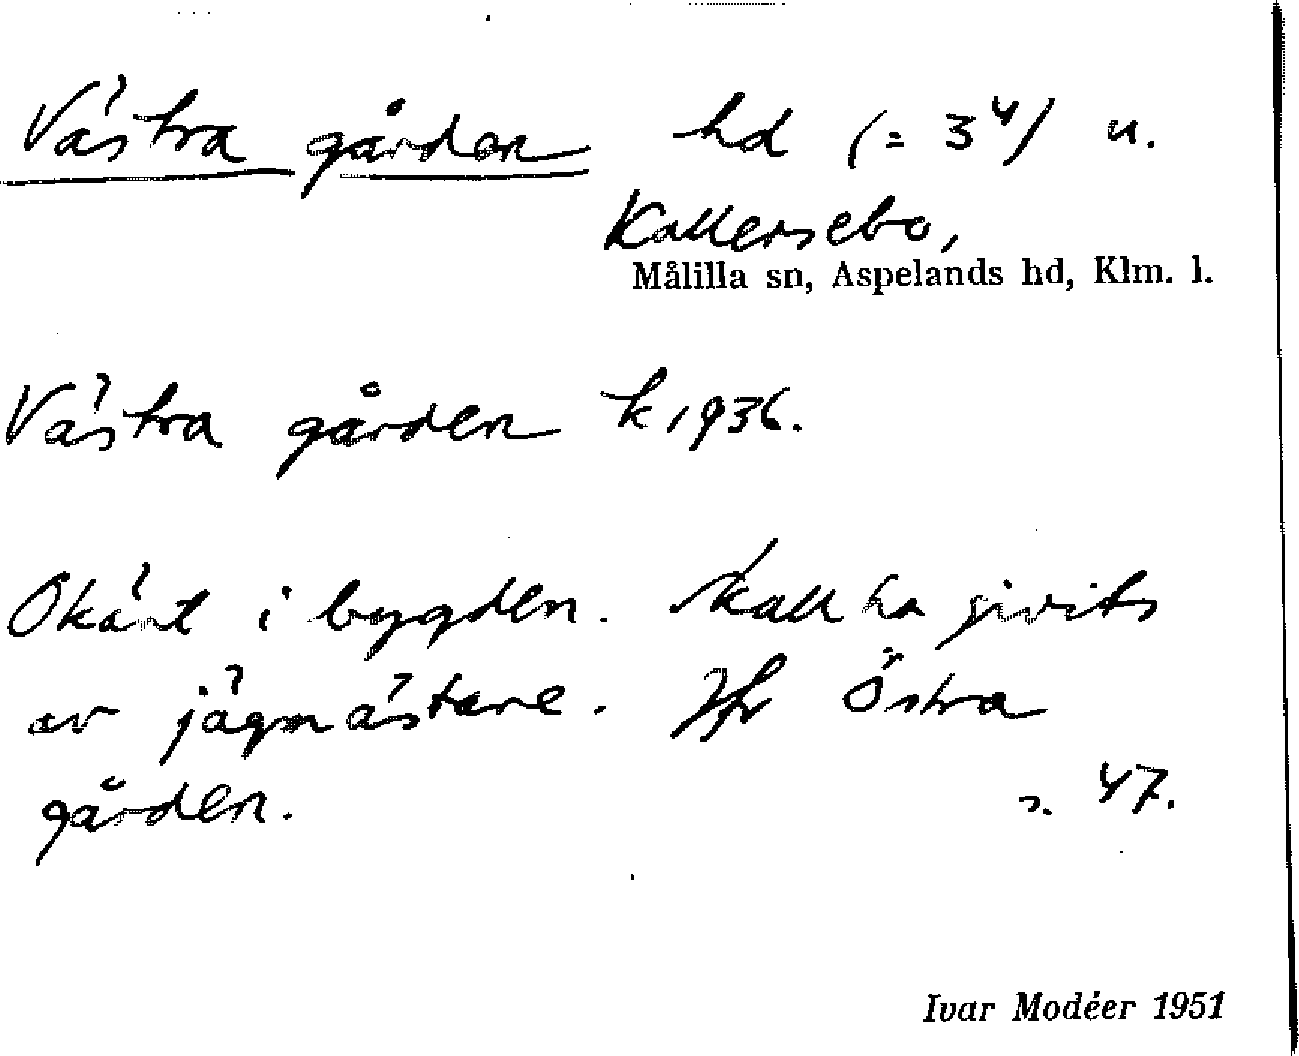 Västra gården hd (= 3⁴) u.
Kallersebo,
Målilla sn, Aspelands hd, Klm. l.
Västra gården k 1936.
Okänt i bygden. Skall ha givits
av jägmästare. Jfr Östra
gården. s. 47.
Ivar Modéer 1951